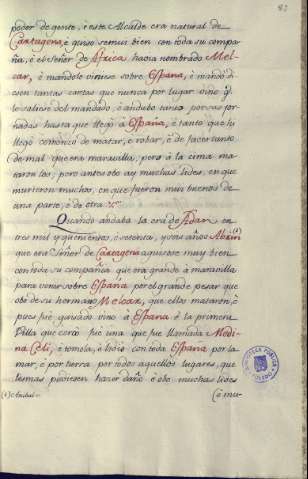 82
poder de gente, è este Alcalde era natural de
Cartagena, è guisose muy bien con toda su compa-
ña, è el Señor de Africa havia nombrado Mel-
car, è mandole viniese sobre España, è mandò
diesen tantas cartas que nunca por lugar vino
lo saliere del mandado, è andubo tanto por sus jor-
nadas hasta que llegò à España, è tanto que hi
llegò comenzò de matar, è robar, è de facer tanto
de mal que era maravilla, pero à la cima ma-
taronlo, pero antes obo ay muchas lides, en que
murieron muchos, en que fueron muy buenos de
una parte, è de otra
Quando andaba la era de Adan en
tres mil y quinientos, è setenta, y seis años
que era Señor de Cartagena aguisose muy bien
con toda su compañia que era grande à maravilla
para venir sobre España por el grande pesar que
obo de su hermano Melcar, que ellos mataron, è
pues fue guisado vino à España è la primera
Villa que cercò fue una que fue llamada Medi-
na Celi, è tomola, è lidiò con toda España por la
mar, è por tierra por todos aquellos lugares, que
les mas pudiesen hacer daño è obo muchas lides
è mu-
BIBLIOTECA PUBLICA
TOLEDO